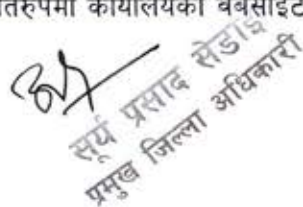 कार्यालयको वेबसाईट
सूर्य प्रसाद सेडाई
प्रमुख जिल्ला अधिकारी